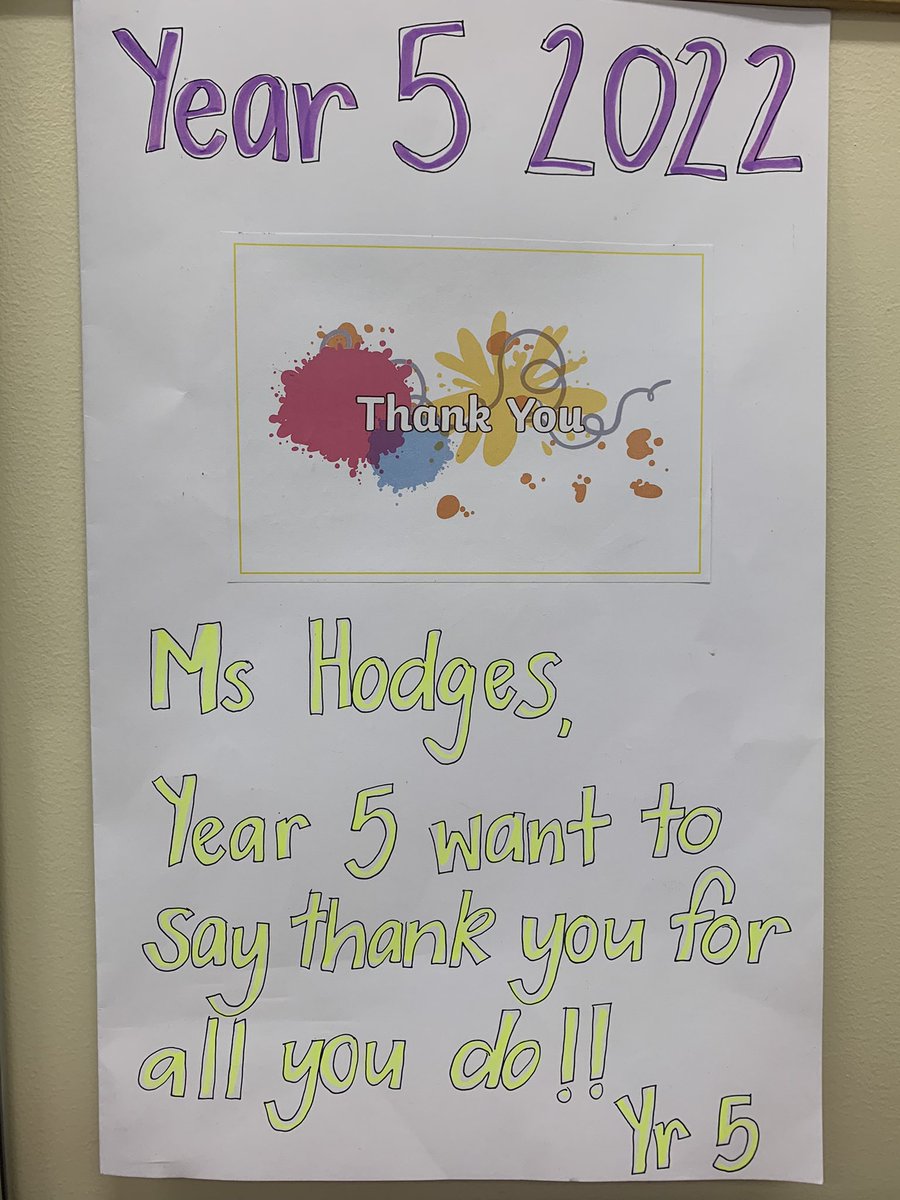 Year 5 2022
Thank You
Ms Hodges,
Year 5 want to
say thank you for
all you do!!
Yr 5